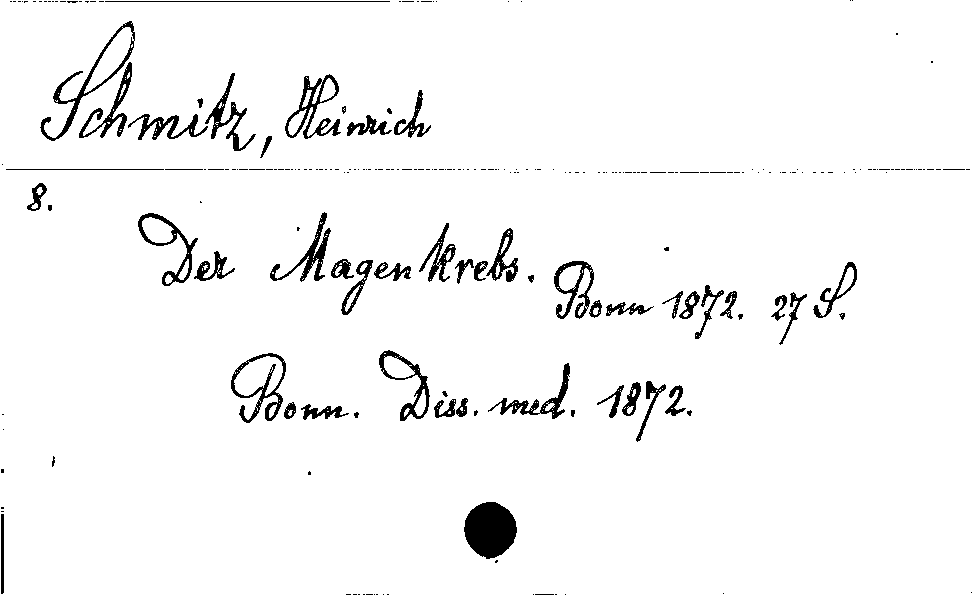 Schmitz, Heinrich
8.
Der Magenkrebs. Bonn 1872. 27 S.
Bonn. Diss. med. 1872.